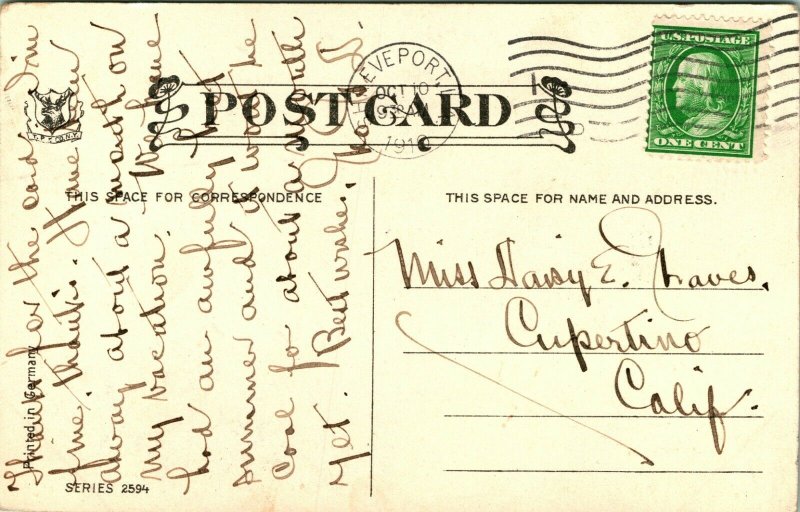 POST CARD
THIS SPACE FOR CORRESPONDENCE
THIS SPACE FOR NAME AND ADDRESS.
U.S. POSTAGE
ONE CENT
OCT 10
Miss Daisy E. Graves.
Cupertino
Calif.
Thanks for the card. I'm
fine, thanks. Have been
away about a month on
my vacation. We have
had an awfully hot
summer and it won't be
cool for about a month
yet. Best wishes.
Printed in Germany
SERIES 2594